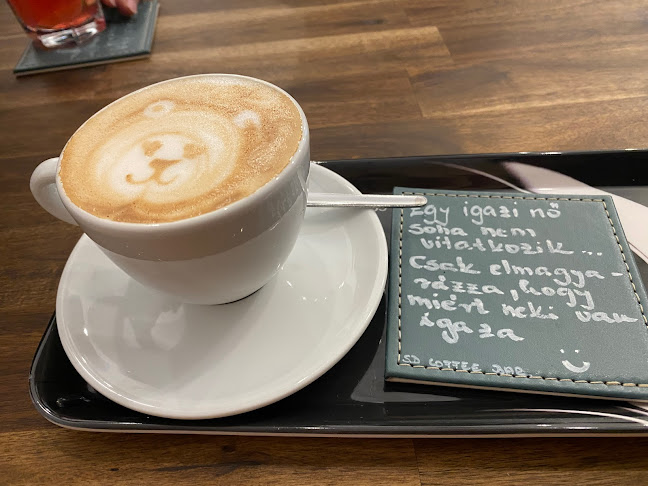 Egy igazi nő
soha nem
vitatkozik...
Csak elmagya-
rázza, hogy
miért neki van
igaza
SD COFFEE